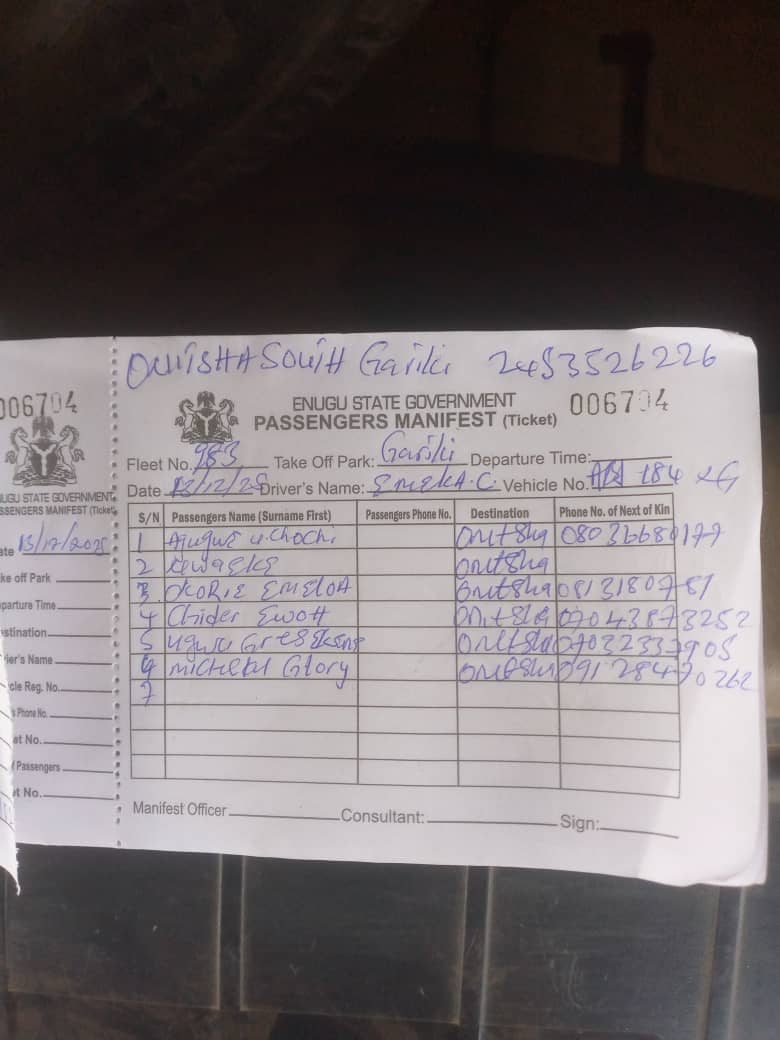 ONITSHA SOUTH Gariki 2453526226
006704
ENUGU STATE GOVERNMENT
PASSENGERS MANIFEST (Ticket)
006704
Fleet No. 983 Take Off Park: Gariki Departure Time:
Date 13/12/25 Driver's Name: EMEKA.C. Vehicle No. 184 XG
S/N Passengers Name (Surname First) Passengers Phone No. Destination Phone No. of Next of Kin
1 Ajugwe uchochi onitsha 08036680177
2 onitsha
3. OKORIE onitsha 0813180781
4 Chider onitsha 07043873252
5 onitsha 07032337905
6 micheal Glory onitsha 09128470262
7
Manifest Officer Consultant: Sign:
UGU STATE GOVERNMENT
SSENGERS MANIFEST (Ticket
ate 13/12/2025
ke off Park
parture Time
stination
ver's Name
cle Reg. No.
s Phone No.
at No.
Passengers
t No.